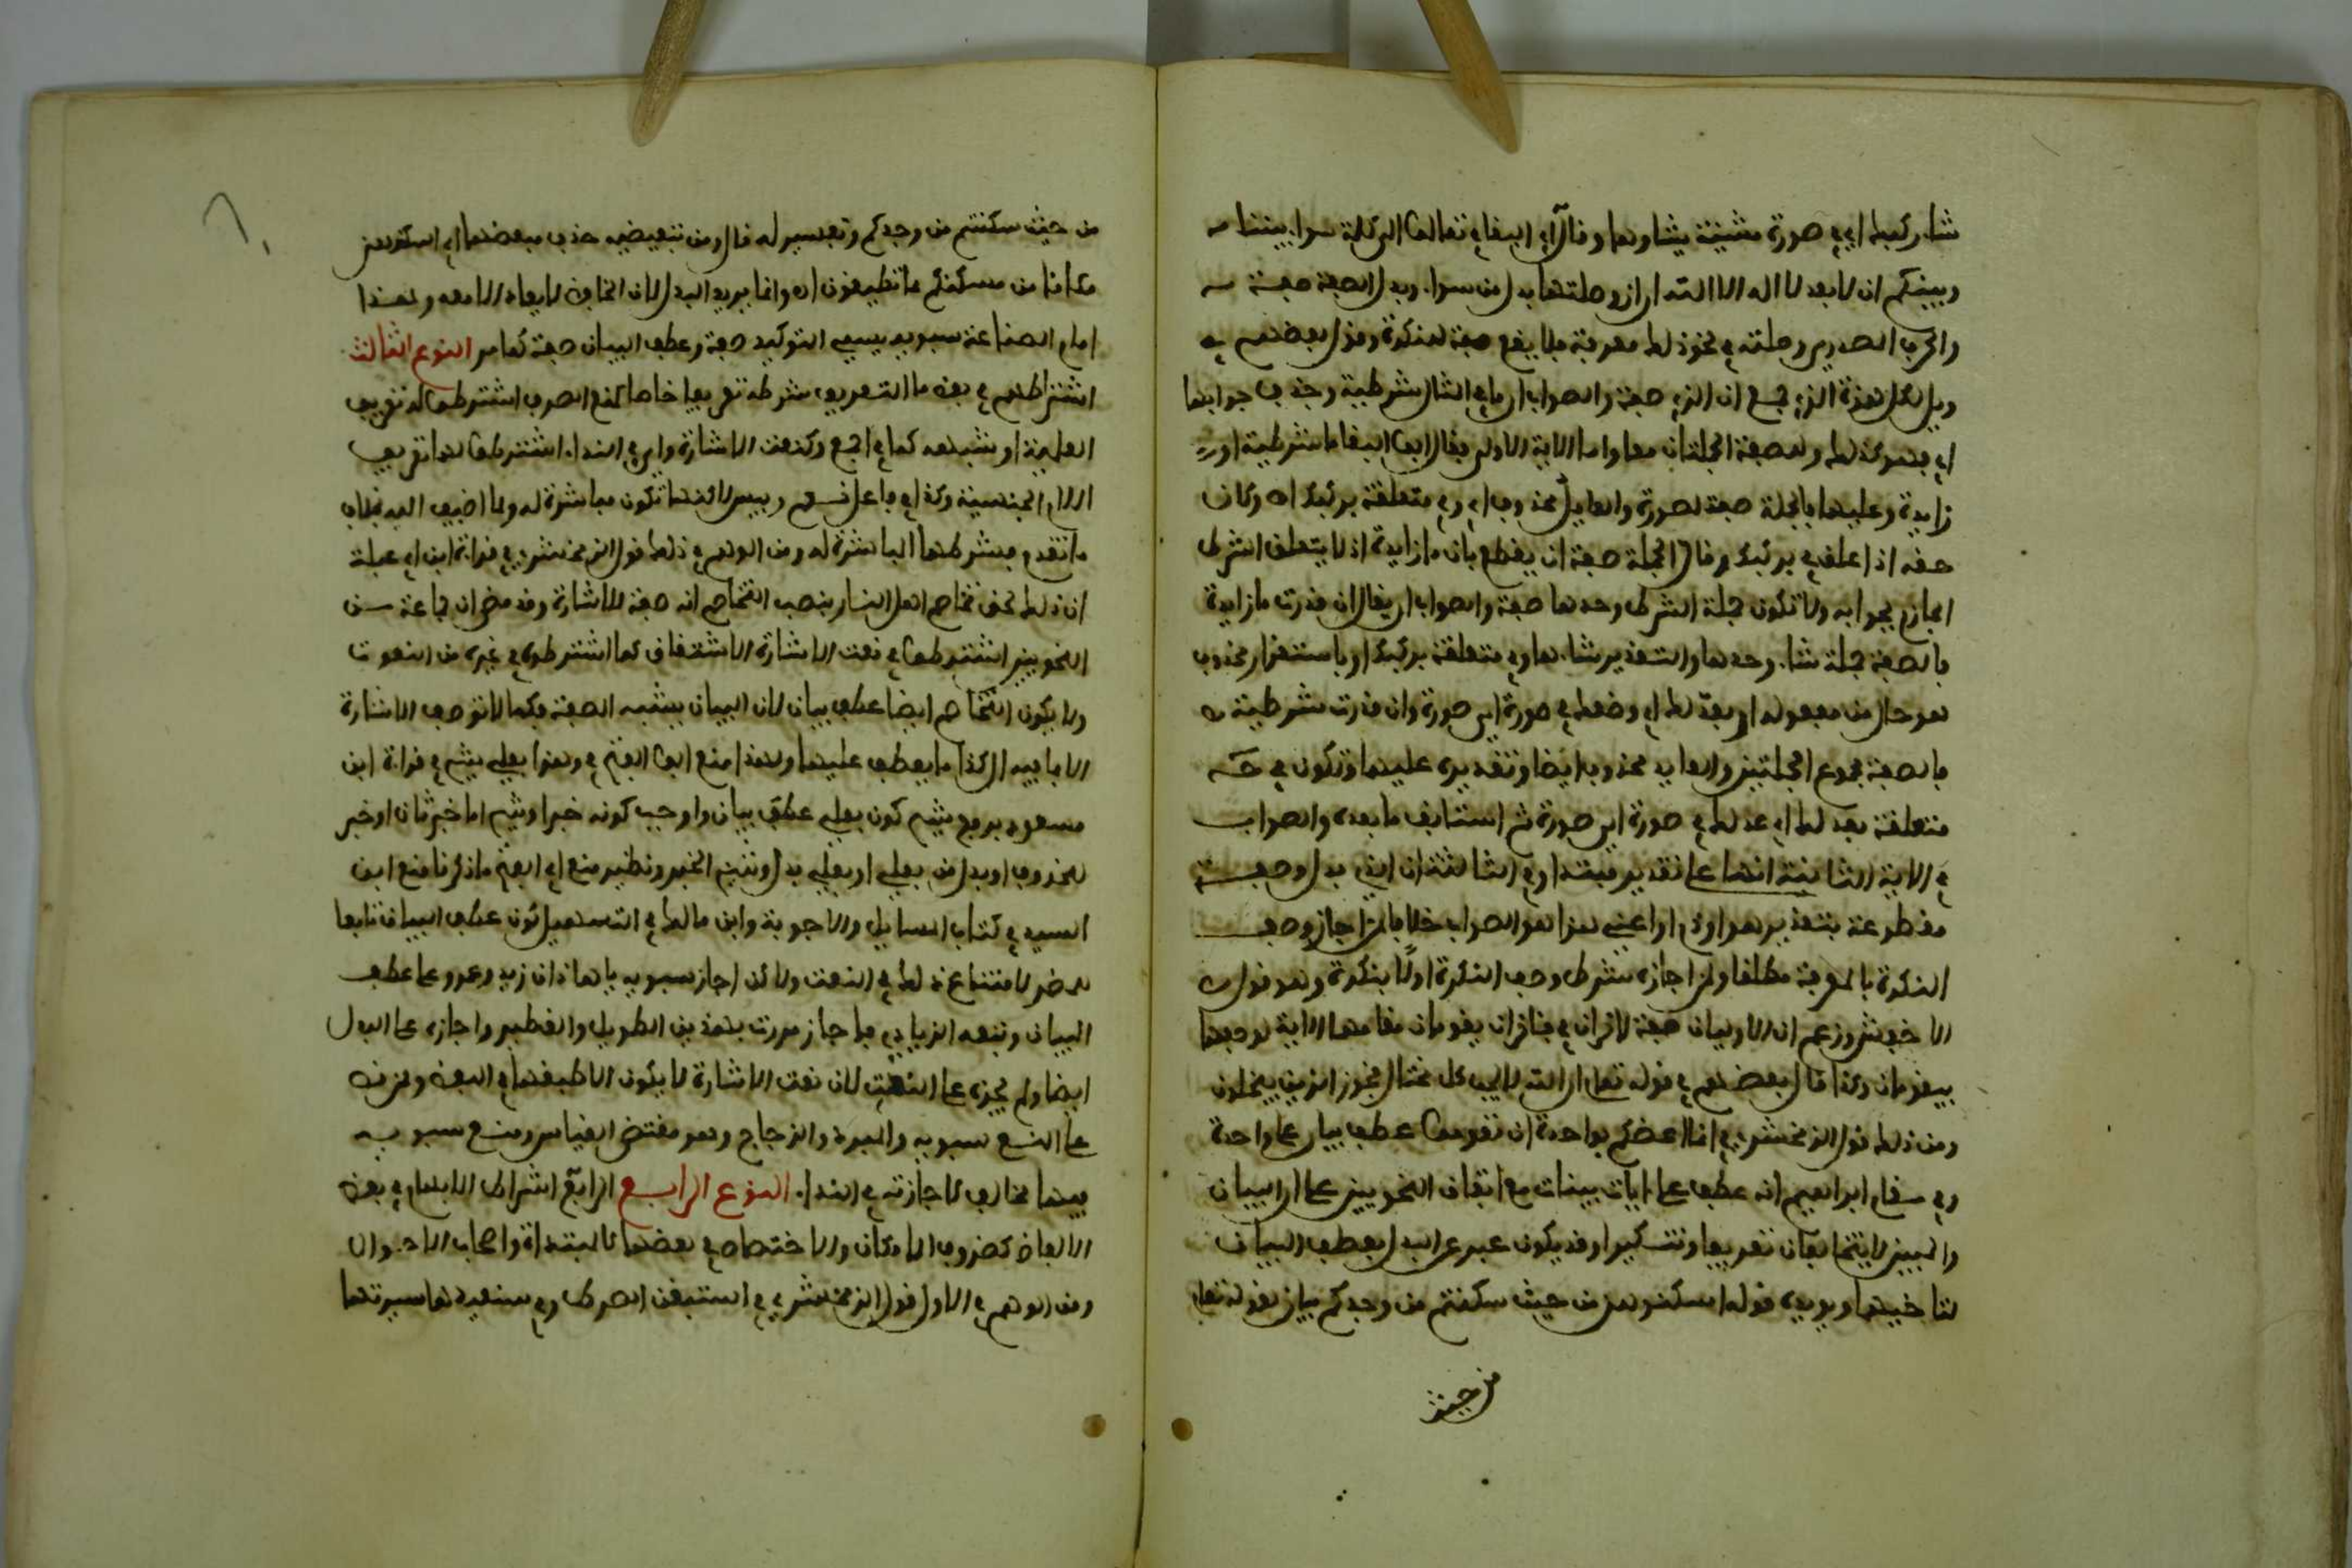 شاء ركبك اي في صورة مشيئة يشاوها وقال في ايضا في تعالوا الى كلمة سوا بيننا
وبينكم ان لا نعبد الا الله ان ان وصلتها بدل من سوا وبدل الصفة صفة
والحرف المصدري وصلته في نحو ذلك معرفة فلا يقع صفة للنكرة وقول بعضهم في
ويل لكل همزة الذي جمع ان الذي صفة والصواب ان ما في المثال شرطية وحذف جوابها
اي فهو كذلك والصفة الجملتان معا واما الاية الاولى فقال ابو البقا ما شرطية او
زايدة وعليهما فالجملة صفة لصورة والعايد محذوف اي وفي متعلقة بركبك اه وكان
حقه اذ علق في بركبك وقال الجملة صفة ان يقطع بان ما زايدة اذ لا يتعلق الشرط
الجازم بجوابه ولا تكون جملة الشرط وحدها صفة والصواب ان يقال ان قدرت ما زايدة
فالصفة جملة شاء وحدها والتقدير شاءها وفي متعلقة بركبك او باستقرار محذوف
هو حال من مفعوله او بعدلك اي وضعك في صورة اي صورة وان قدرت شرطية
فالصفة مجموع الجملتين والعايد محذوف ايضا وتقديره عليها وتكون في ح
متعلقة بعدلك اي عدلك في صورة اي صورة ثم استانف ما بعده والصواب
في الاية الثانية انها على تقدير مبتدا وفي الثالثة ان الذي بدل او صفة
مقطوعة بتقدير هو او اذم او اعني هذا هو الصواب خلافا لمن اجاز وصف
النكرة بالمعرفة مطلقا ولمن اجازه بشرط وصف النكرة اولا بنكرة وهو قول
الاخفش وزعم ان الاوليان صفة لاخران في فاخران يقومان مقامهما الاية لوصفها
بيقومان وكذا قال بعضهم في قوله تعالى ان الله لا يحب كل مختال فخور الذين يبخلون
ومن ذلك قول الزمخشري في انما اعظكم بواحدة ان تقوموا عطف بيان على واحدة
وفي مقام ابراهيم انه عطف على ايات بينات مع اتفاق النحويين على ان البيان
والمبين لا يتخالفان تعريفا وتنكيرا وقد يكون عبر عن البدل بعطف البيان
لتاخيهما ويويده قوله اسكنوهن من حيث سكنتم من وجدكم بيان لقوله تعالى
من حيث
من حيث سكنتم من وجدكم وتفسير له قال ومن تبعيضية حذف مبعضها اي اسكنوهن
مكانا من مسكنكم مما تطيقون اه وانما يريد البدل لان الخافض لا يعاد الا معه وهذا
امام الصناعة سيبويه يسمي التوكيد صفة وعطف البيان صفة كما مر النوع الثالث
اشتراطهم في بعض ما التعريف شرطه تعريفا خاصا كمنع الصرف اشترطوا له تعريف
العلمية او شبهه كما في اجمع وكنعت الاشارة واي في الندا اشترطوا لهما تعريف
اللام الجنسية وكذا في فاعل نعم وبيس لكنها تكون مباشرة له ولما اضيف اليه بخلاف
ما تقدم فشرطها المباشرة له ومن الوهم في ذلك قول الزمخشري في قراءة ابن ابي عبلة
ان ذلك لحق تخاصم اهل النار بنصب التخاصم انه صفة للاشارة وقد مضى ان جماعة من
النحويين اشترطوا في نعت الاشارة الاشتقاق كما اشترطوه في غيره من النعوت
ولا يكون التخاصم ايضا عطف بيان لان البيان يشبه الصفة فكما لا توصف الاشارة
الا بما فيه ال كذا ما يعطف عليها ولهذا منع ابو الفتح في وهذا بعلي شيخ في قراءة ابن
مسعود برفع شيخ كون بعلي عطف بيان واوجب كونه خبرا وشيخ اما خبر ثان او خبر
لمحذوف او بدل من بعلي او بعلي بدل وشيخ الخبر ونظير منع ابي الفتح ما ذكرنا منع ابن
السيد في كتاب المسايل والاجوبة وابن مالك في التسهيل كون عطف البيان تابعا
لمضمر لامتناع ذلك في النعت ولكن اجاز سيبويه يا هذان زيد وعمرو على عطف
البيان وتبعه الزيادي فاجاز مررت بهذين الطويل والقصير واجازه على البدل
ايضا ولم يجزه على النعت لان نعت الاشارة لا يكون الا طبقها في اللفظ وممن نص
على المنع سيبويه والمبرد والزجاج وهو مقتضى القياس ومنع سيبويه
فيها مخالف لاجازته في الندا النوع الرابع الرابع اشتراط الابهام في بعض
الالفاظ كظروف المكان والاختصاص في بعضها كالمبتداة واصحاب الاحوال
ومن الوهم في الاول قول الزمخشري في استبقوا الصراط وفي سنعيدها سيرتها